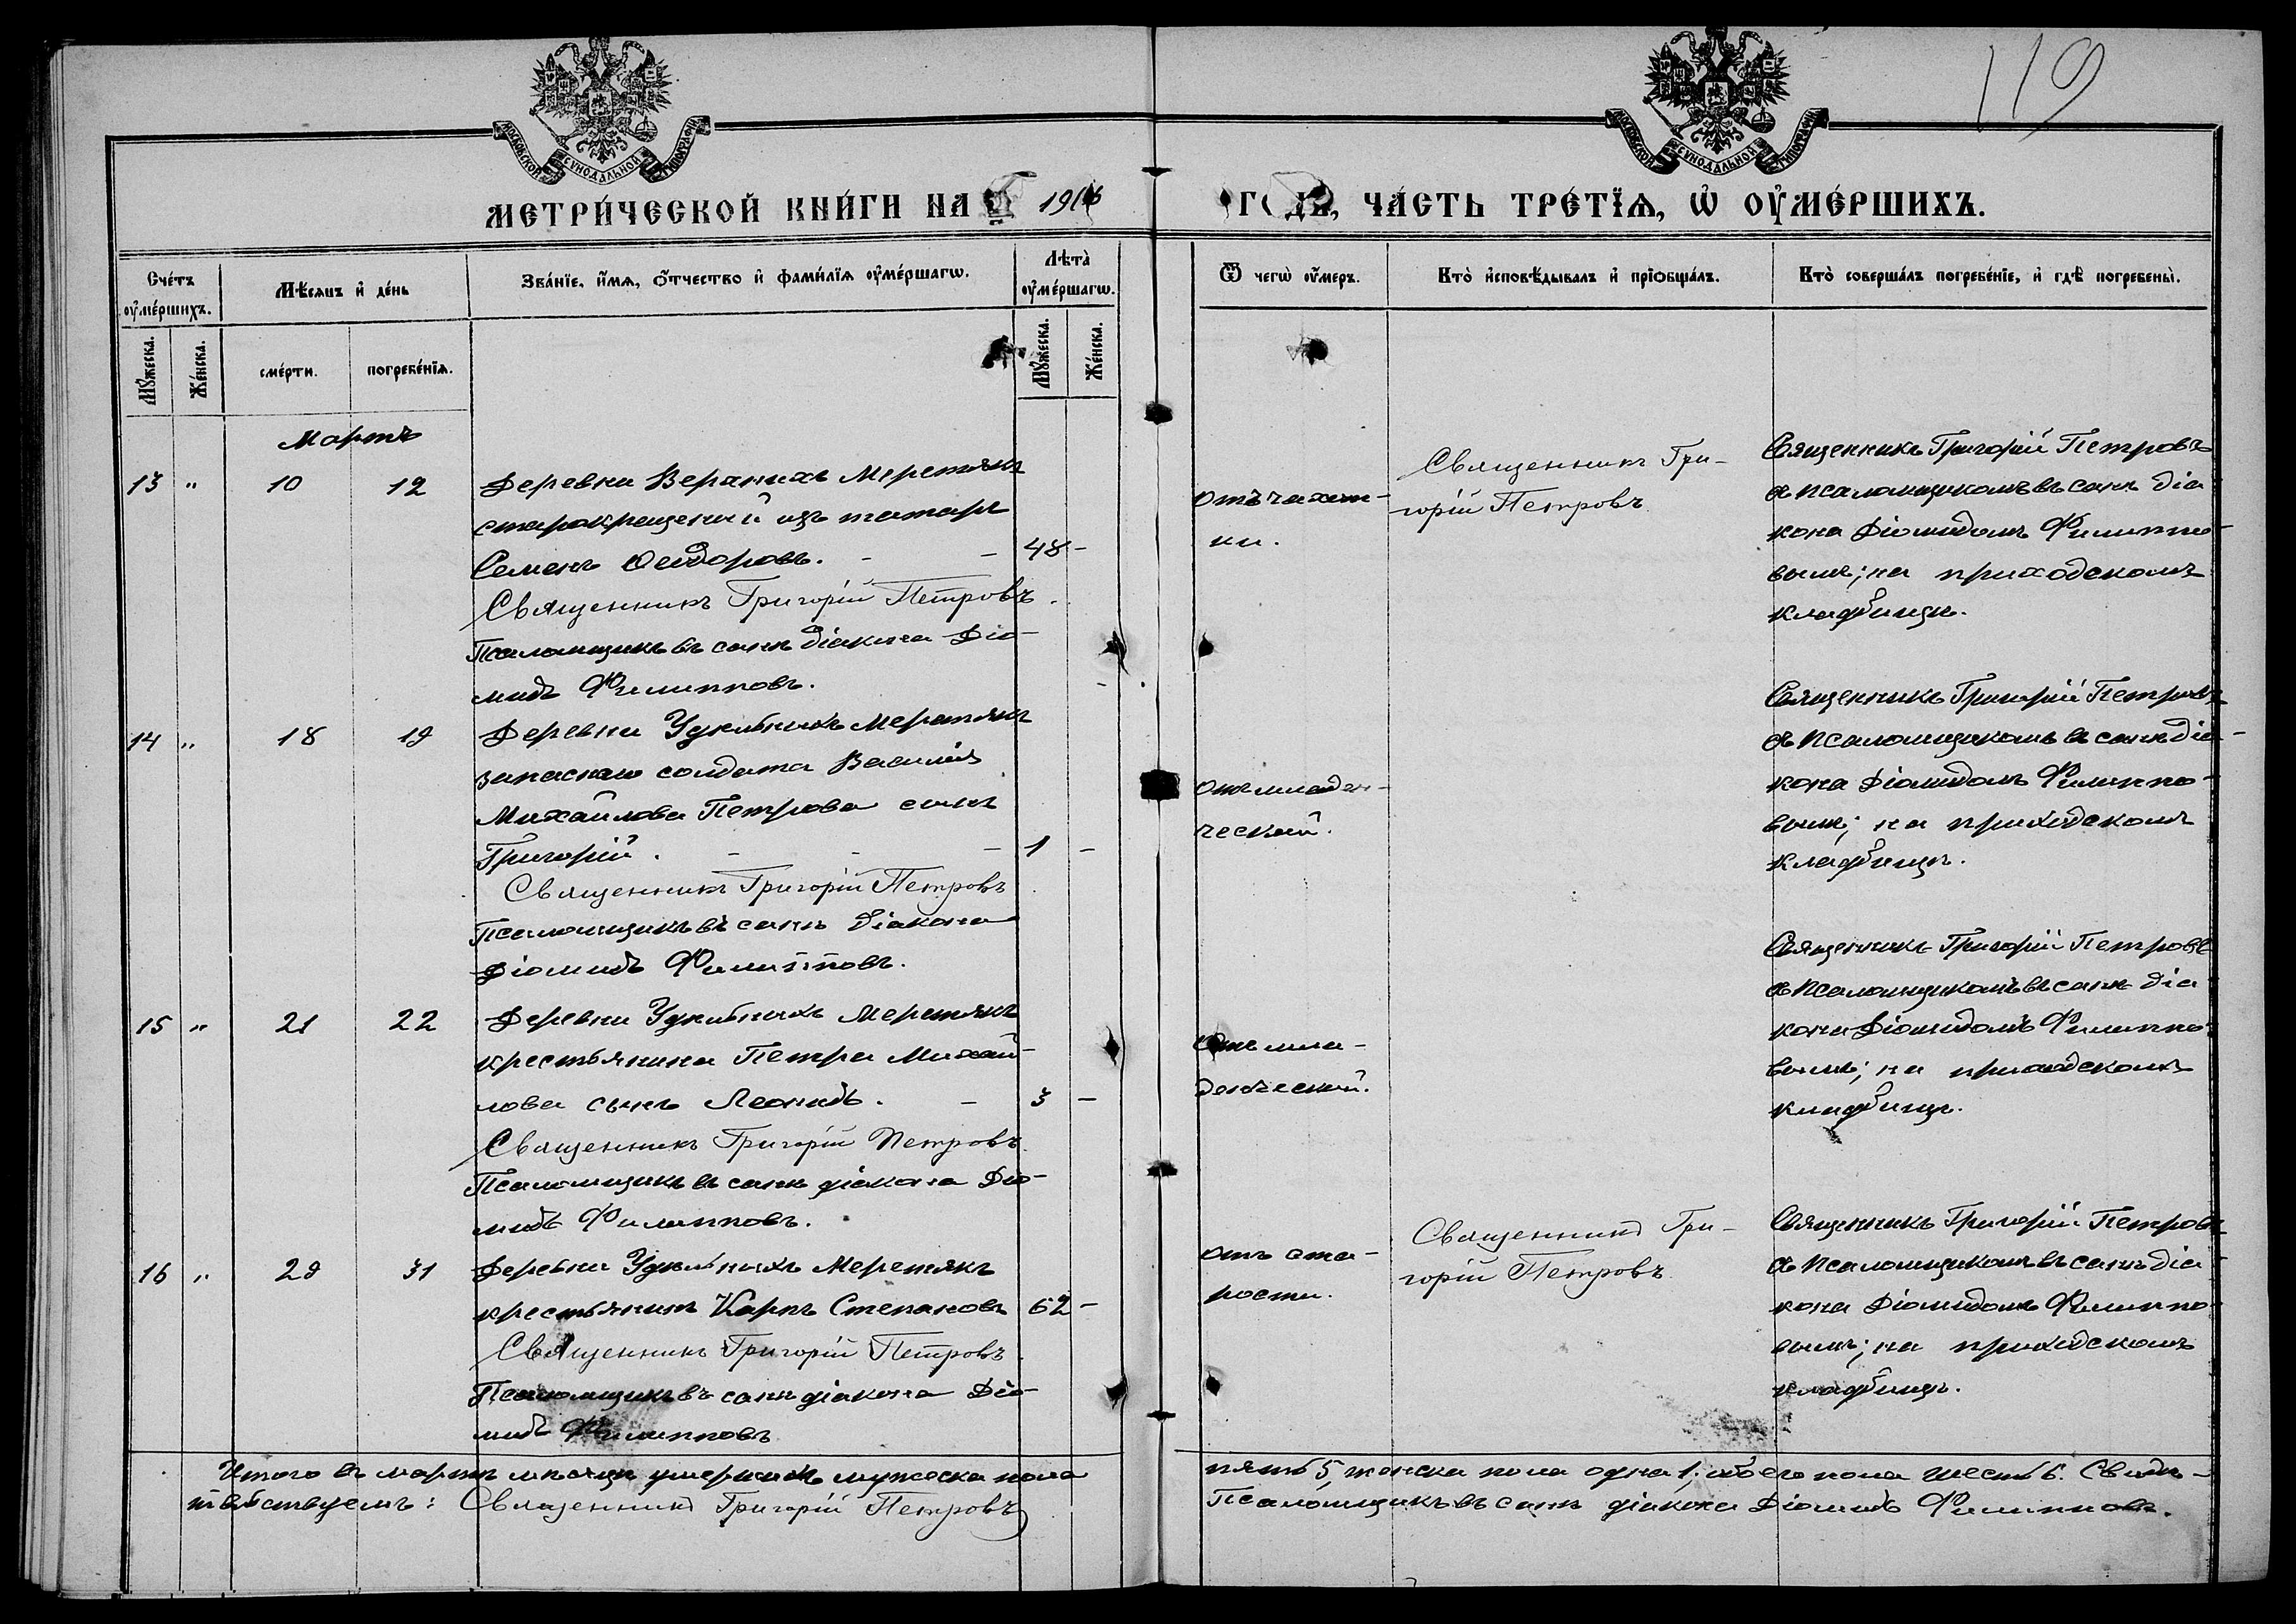 119
МОСКОВСКОЙ СУНОДАЛЬНОЙ ТИПОГРАФІИ
МОСКОВСКОЙ СУНОДАЛЬНОЙ ТИПОГРАФІИ
МЕТРИ́ЧЕСКОЙ КНИ́ГИ НА 1916 ГОДЪ, ЧА́СТЬ ТРЕ́ТІѦ, Ѡ҆ ОУ҆МЕ́РШИХЪ.
Сче́тъ оу҆ме́ршихъ.
Мѣ́сяцъ и҆ де́нь
Зва́нїе, и҆́мѧ, ѻ҆́тчество и҆ фами́лїѧ оу҆ме́ршагѡ.
Лѣта̀ оу҆ме́ршагѡ.
Ѿ чегѡ̀ оу҆́меръ.
Кто̀ и҆сповѣ́дывалъ и҆ прїѡбща́лъ.
Кто̀ соверша́лъ погребе́нїе, и҆ гдѣ̀ погребены̀.
Мꙋ́жеска.
Же́нска.
сме́рти.
погребе́нїѧ.
Мꙋ́жеска.
Же́нска.
Мартъ
13 " 10 12
Деревни Верхнихъ Меретякъ
старокрещеный изъ татаръ
Семенъ Ѳеодоровъ. - - 48 -
Священникъ Григорій Петровъ.
Псаломщикъ въ санѣ діакона Діо-
мидъ Филипповъ.
отъ чахот-
ки.
Священникъ Гри-
горій Петровъ
Священникъ Григорій Петровъ
съ псаломщикомъ въ санѣ діа
кона Діомидомъ Филиппо-
вымъ; на приходскомъ
кладбищѣ.
14 " 18 19
Деревни Меретякъ
запаснаго солдата Василія
Михайлова Петрова сынъ
Григорій. - - - 1 -
Священникъ Григорій Петровъ
Псаломщикъ въ санѣ діакона
Діомидъ Филипповъ.
отъ младен-
ческой.
Священникъ Григорій Петровъ
съ псаломщикомъ въ санѣ діа-
кона Діомидомъ Филиппо-
вымъ; на приходскомъ
кладбищѣ.
15 " 21 22
Деревни Меретякъ
крестьянина Петра Михай-
лова сынъ Леонидъ. - 3 -
Священникъ Григорій Петровъ.
Псаломщикъ въ санѣ діакона Діо-
мидъ Филипповъ.
Отъ мла-
денческой.
Священникъ Григорій Петровъ
съ псаломщикомъ въ санѣ діа
кона Діомидомъ Филиппо-
вымъ; на приходскомъ
кладбищѣ.
16 " 29 31
Деревни Меретякъ
крестьянинъ Карпъ Степановъ 62 -
Священникъ Григорій Петровъ.
Псаломщикъ въ санѣ діакона Діо-
мидъ Филипповъ
отъ ста-
рости.
Священникъ Гри-
горій Петровъ
Священникъ Григорій Петровъ
съ псаломщикомъ въ санѣ діа
кона Діомидомъ Филиппо-
вымъ; на приходскомъ
кладбищѣ.
Итого въ мартѣ мѣсяцѣ умершихъ мужеска пола пять 5, женска пола одна 1; обоего пола шесть 6. Свидѣ-
тельствуемъ: Священникъ Григорій Петровъ Псаломщикъ въ санѣ діакона Діомидъ Филипповъ.